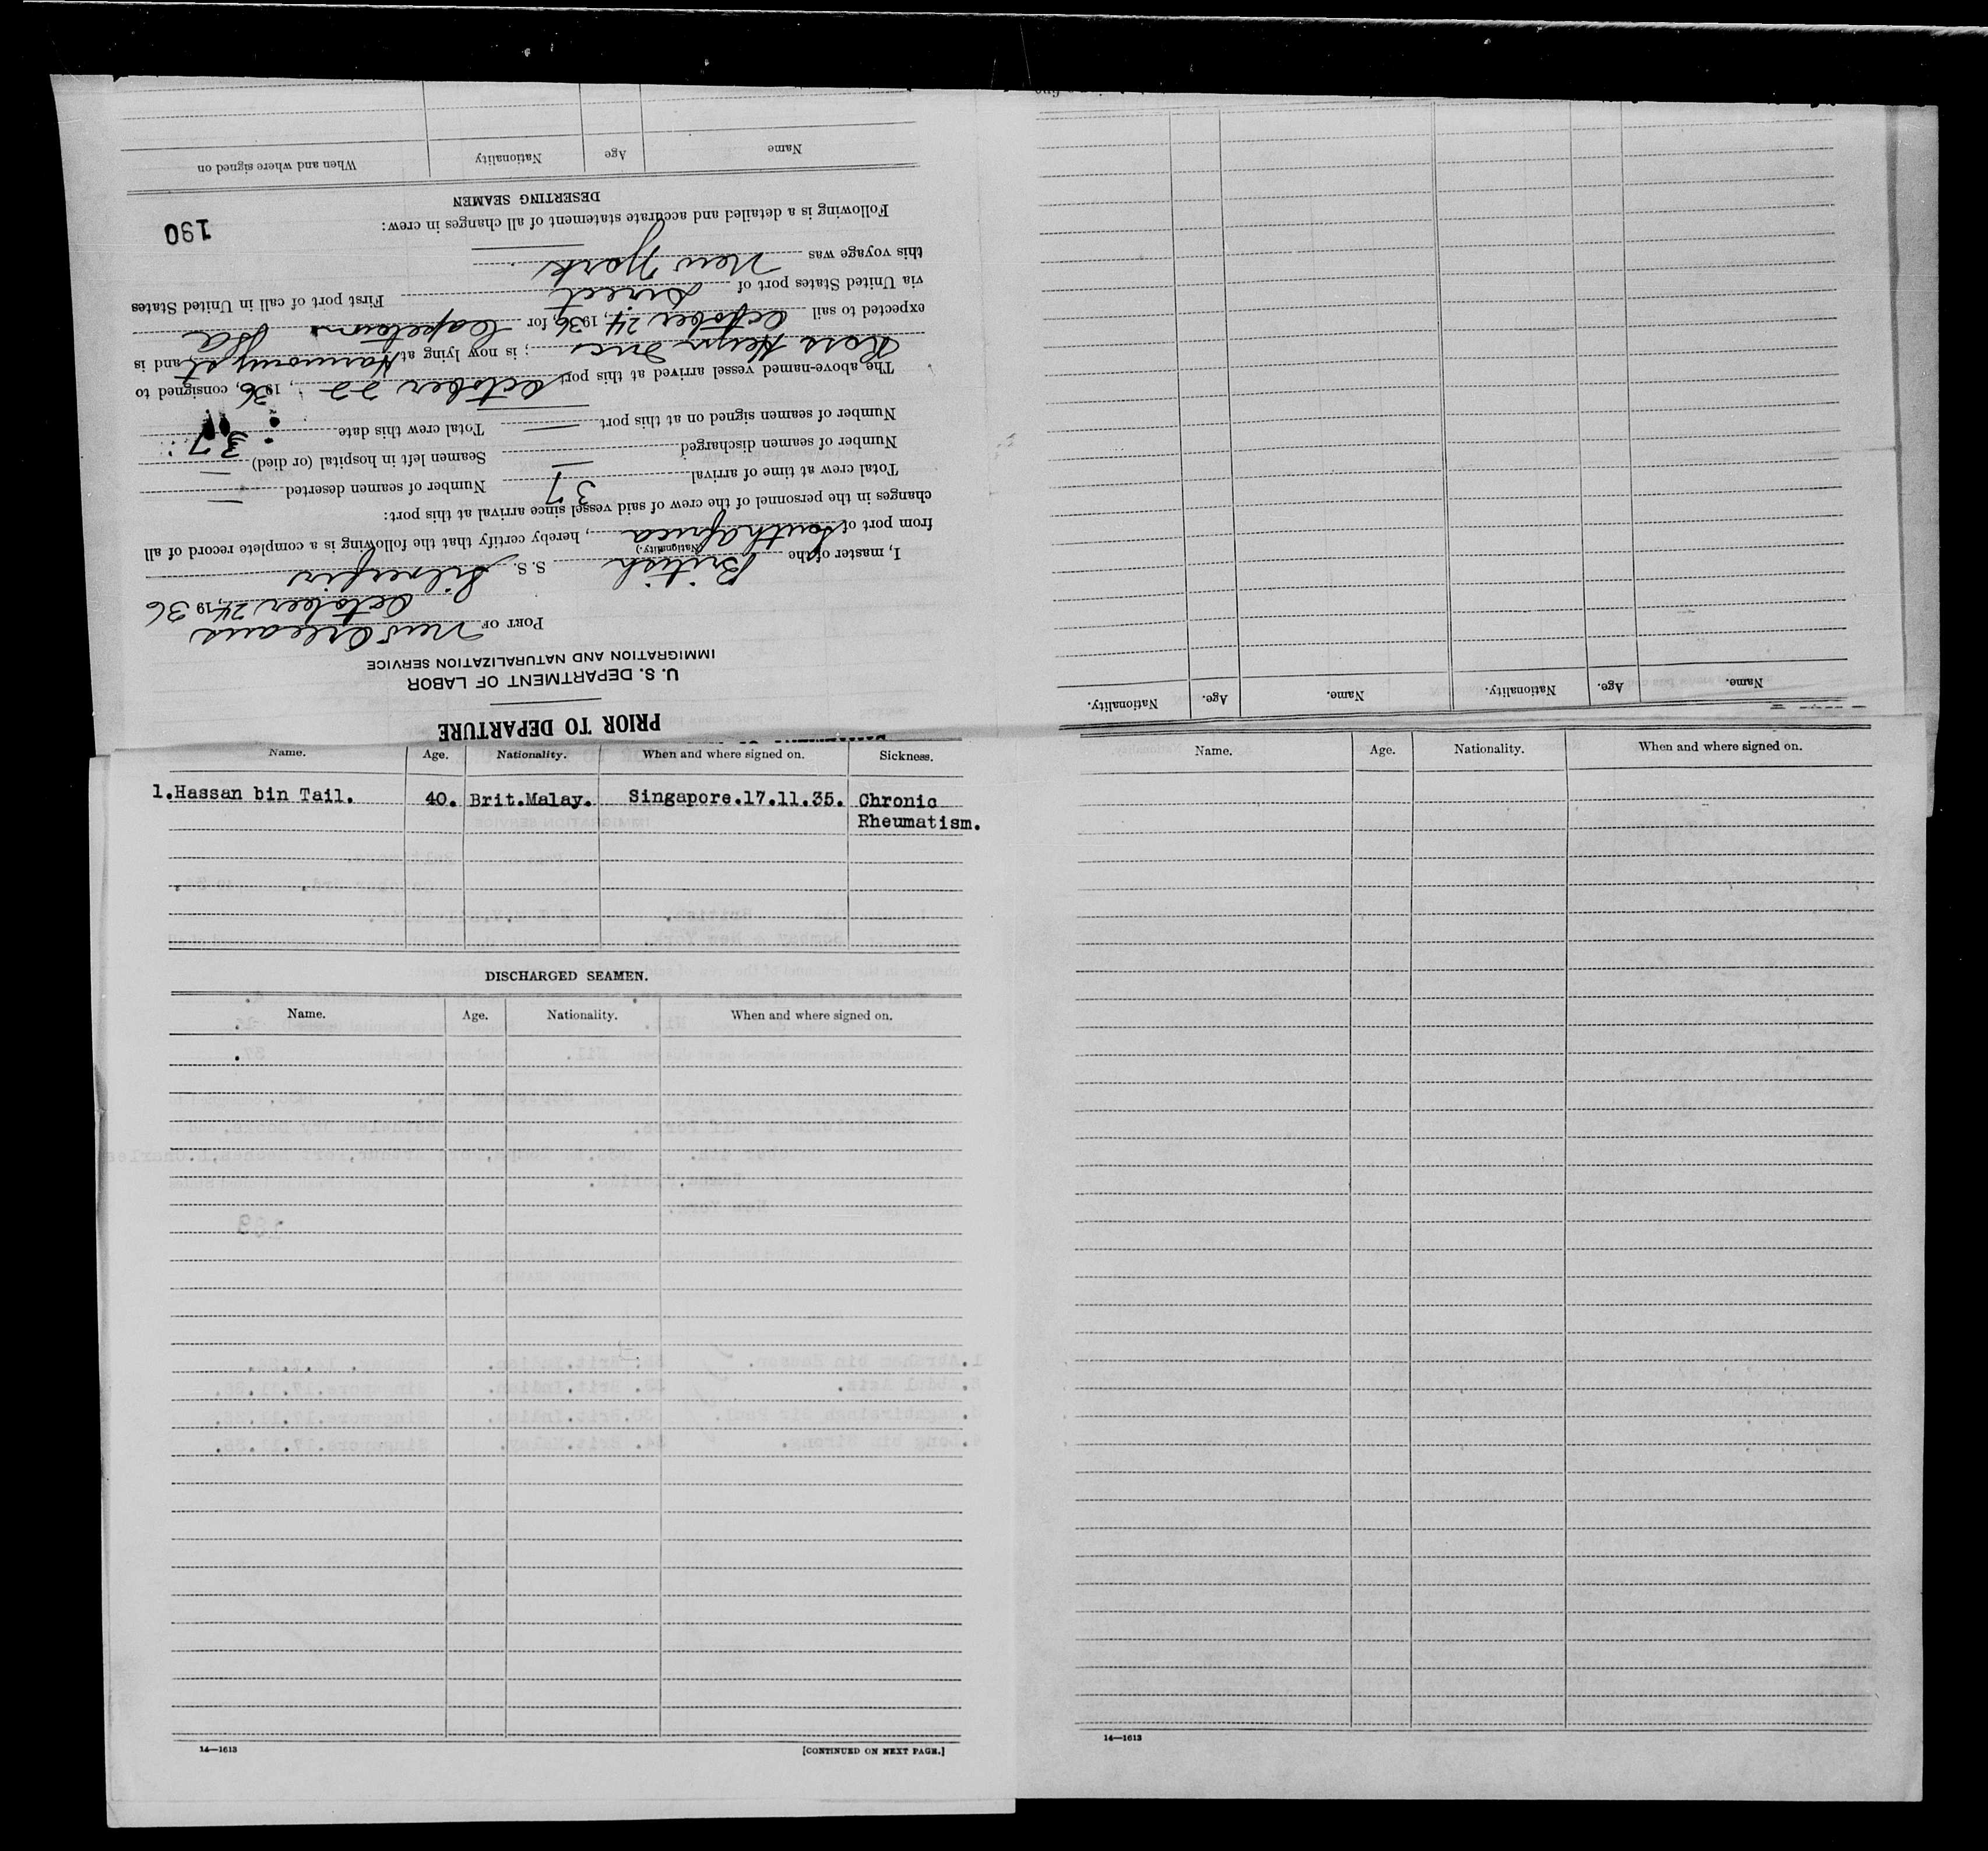 PRIOR TO DEPARTURE
U. S. DEPARTMENT OF LABOR
IMMIGRATION AND NATURALIZATION SERVICE
PORT OF New Orleans
October 24, 1936
I, master of the British S. S. Silverfir
(Nationality.)
from port of South Africa, hereby certify that the following is a complete record of all
changes in the personnel of the crew of said vessel since arrival at this port:
Total crew at time of arrival 37 Number of seamen deserted —
Number of seamen discharged — Seamen left in hospital (or died) —
Number of seamen signed on at this port — Total crew this date 37
The above-named vessel arrived at this port October 22, 1936, consigned to
Ross Heyn Inc; is now lying at Harmony st, and is
expected to sail October 24, 1936, for Capetown
via United States port of Direct First port of call in United States
this voyage was New York
Following is a detailed and accurate statement of all changes in crew:
190
DESERTING SEAMEN
Name Age Nationality When and where signed on
Name. Age. Nationality. Name. Age. Nationality.
Name. Age. Nationality. When and where signed on. Sickness.
1.Hassan bin Tail. 40. Brit.Malay. Singapore.17.11.35. Chronic
Rheumatism.
DISCHARGED SEAMEN.
Name. Age. Nationality. When and where signed on.
14—1613 [CONTINUED ON NEXT PAGE.]
Name. Age. Nationality. When and where signed on.
14—1613